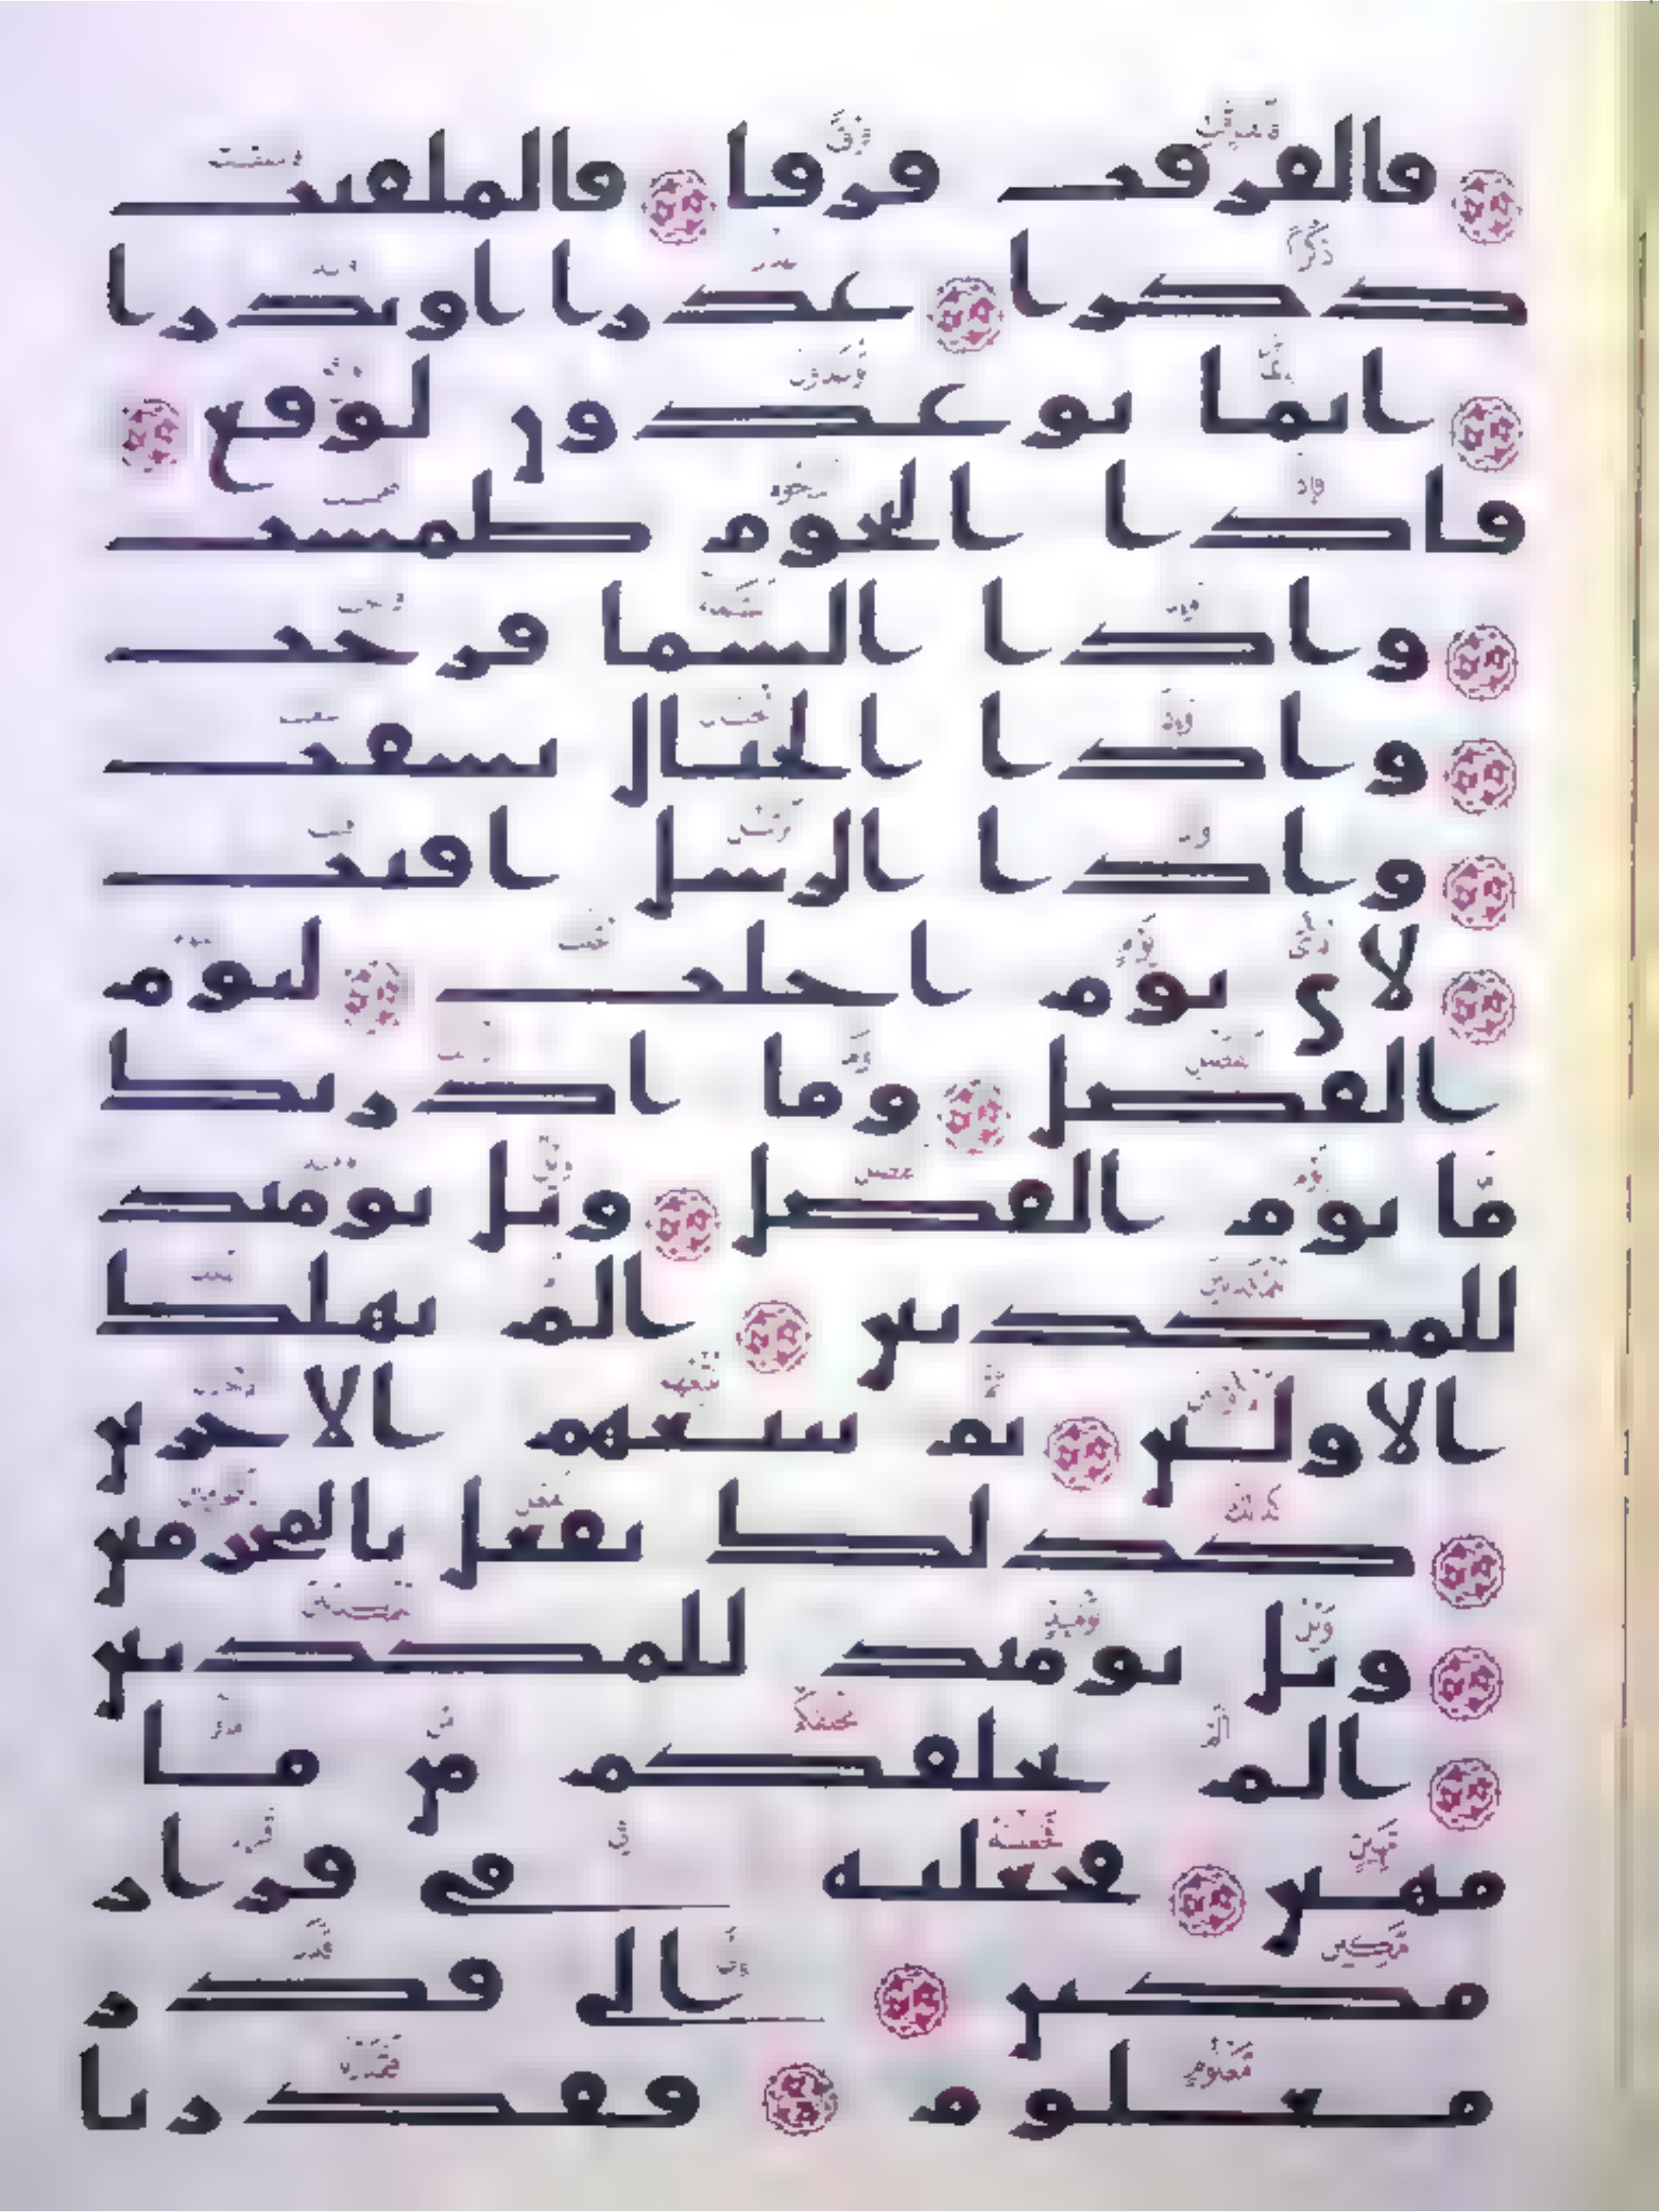 فالفرقت فرقا فالملقيت
ذكرا عذرا او نذرا
انما توعدون لوقع
فاذا النجوم طمست
واذا السما فرجت
واذا الجبال نسفت
واذا الرسل اقتت
لاي يوم اجلت ليوم
الفصل وما ادريك
ما يوم الفصل ويل يومئذ
للمكذبين الم نهلك
الاولين ثم نتبعهم الاخرين
كذلك نفعل بالمجرمين
ويل يومئذ للمكذبين
الم نخلقكم من ما
مهين فجعلنه في قرار
مكين الى قدر
معلوم فقدرنا